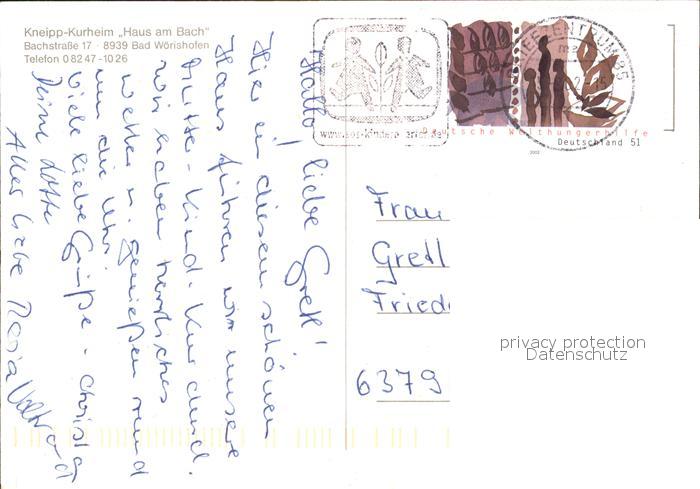 Kneipp-Kurheim „Haus am Bach"
Bachstraße 17 · 8939 Bad Wörishofen
Telefon 0 82 47 - 10 26
Hallo! liebe Gretl!
Hier in diesem schönen
Haus führen wir unsere
Mutter-Kind-Kur durch.
Wir haben herrliches
Wetter u. genießen rund
um die Uhr.
Viele liebe Grüße - Christa
Deine Lotte
Alles Liebe
Deutsche Welthungerhilfe
Deutschland 51
2002
BRIEFZENTRUM 86
Frau
Gretl
Fried
6379
privacy protection
Datenschutz